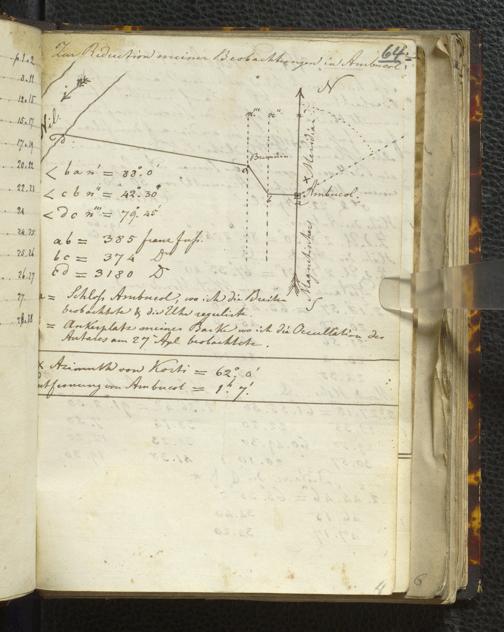 64.
Zur Reduction meiner Beobachtungen in Ambucol.
N
Nil
n''' n''
d
c
b
a Ambucol.
Magnetischer Meridian
S
< b a n' = 88°. 0'
< c b n'' = 42. 30'
< d c n''' = 79. 45'
ab = 385 franz fuss.
bc = 374 D°
cd = 3180 D°
a = Schloss Ambucol, wo ich die Breiten
beobachtete & die Uhr regulirte
= Ankerplatz meiner Barke wo ich die Occultation des
Antares am 27 Apl beobachtete.
x Azimuth von Korti = 62°. 0'
Entfernung von Ambucol = 1h 7'.
p. 1.2
12.15
15.17
17.19
20.22
22.23
24
24.25
25.26
26.27
27.
28.
4
6